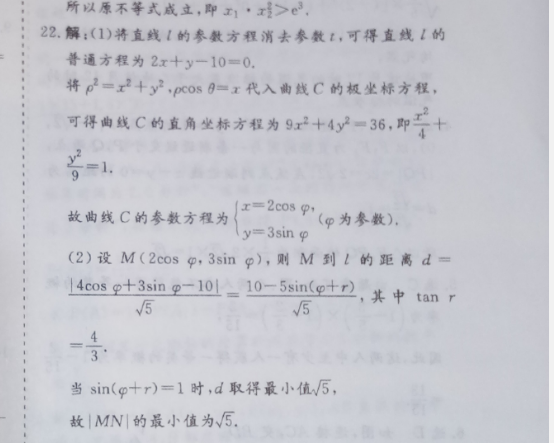 所以原不等式成立,即 x₁·x₂²>e³.
22.解:(1)将直线 l 的参数方程消去参数 t,可得直线 l 的
普通方程为 2x+y-10=0.
将 ρ²=x²+y²,ρcos θ=x 代入曲线 C 的极坐标方程,
可得曲线 C 的直角坐标方程为 9x²+4y²=36,即 x²/4+
y²/9=1.
故曲线 C 的参数方程为{x=2cos φ, y=3sin φ (φ 为参数).
(2)设 M(2cos φ,3sin φ),则 M 到 l 的距离 d=
|4cos φ+3sin φ-10|/√5=10-5sin(φ+r)/√5,其中 tan r
=4/3.
当 sin(φ+r)=1 时,d 取得最小值√5,
故|MN|的最小值为√5.